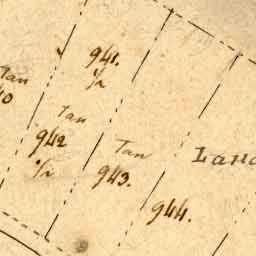 941.
1/2
Tan
40
Tan
942
1/2
Tan
943.
Land
944.